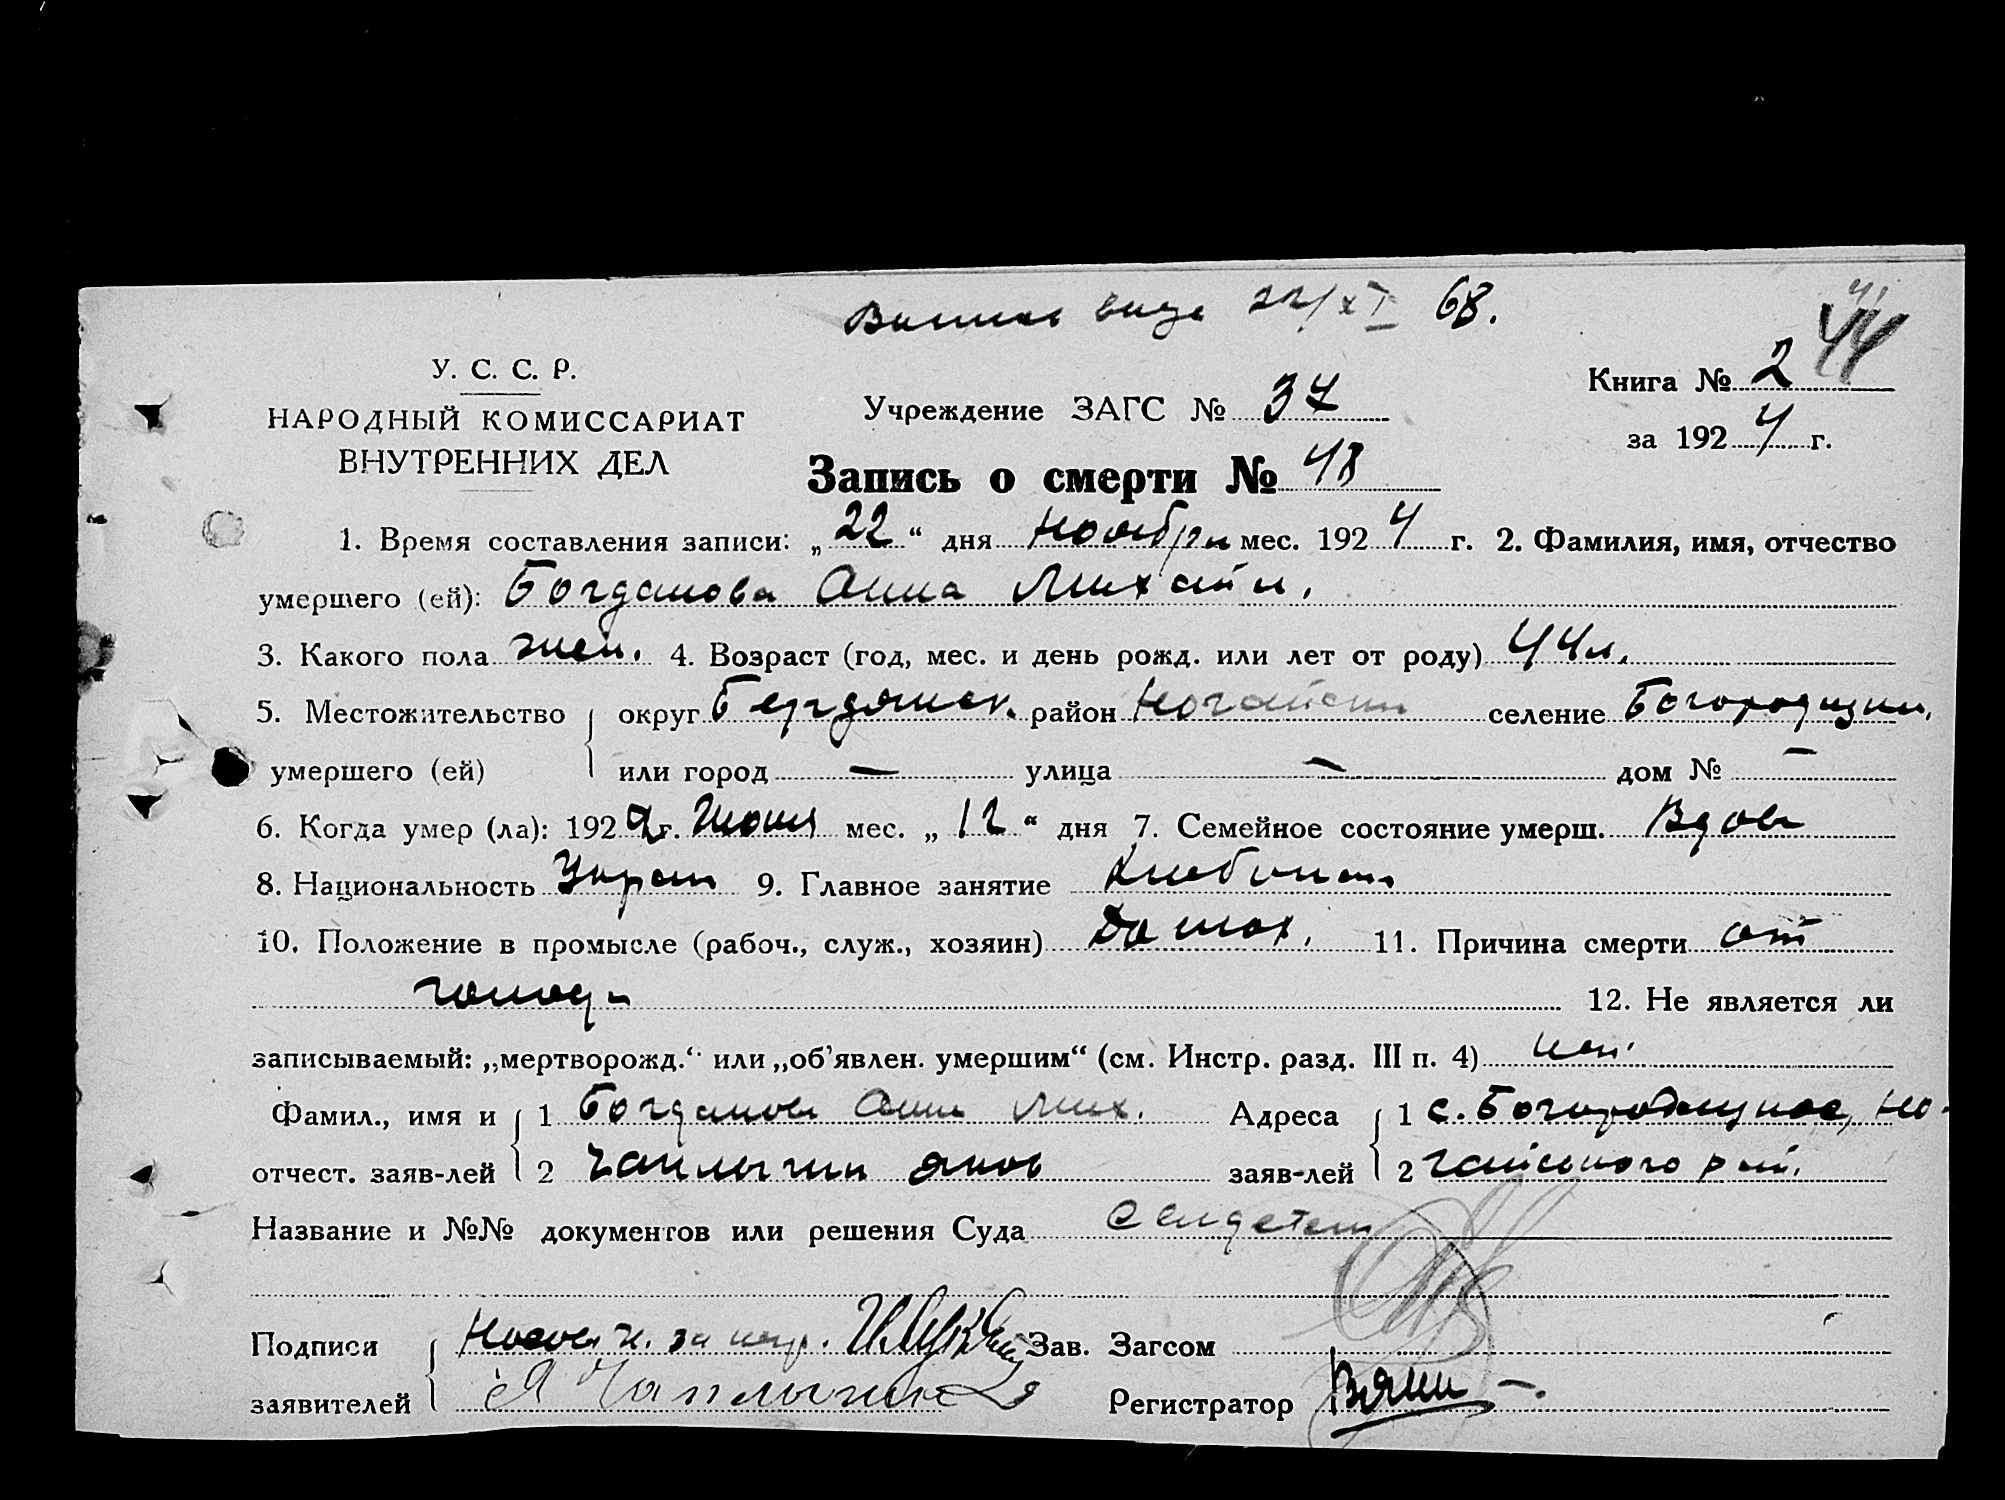 22/XI 68.
44
У. С. С. Р.
НАРОДНЫЙ КОМИССАРИАТ
ВНУТРЕННИХ ДЕЛ
Учреждение ЗАГС № 37
Книга № 2
за 1924 г.
Запись о смерти № 48
1. Время составления записи: „22“ дня Ноября мес. 1924 г. 2. Фамилия, имя, отчество
умершего (ей): Богданова Анна Михайл.
3. Какого пола жен. 4. Возраст (год, мес. и день рожд. или лет от роду) 44 л.
5. Местожительство округ Бердянск. район Ногайский селение Богородицкии.
умершего (ей) или город — улица — дом № —
6. Когда умер (ла): 1922 г. Июня мес. „12“ дня 7. Семейное состояние умерш. Вдова
8. Национальность Украин 9. Главное занятие Хлебопаш
10. Положение в промысле (рабоч., служ., хозяин) Домох. 11. Причина смерти от
голода 12. Не является ли
записываемый: „мертворожд.“ или „об’явлен. умершим“ (см. Инстр. разд. III п. 4) нет
Фамил., имя и 1 Богданова Анна Мих. Адреса 1 с. Богородицкое, Но-
отчест. заяв-лей 2 Чаплыгин Яков заяв-лей 2 гайского рай.
Название и №№ документов или решения Суда
Подписи за негр. Зав. Загсом
заявителей Я Чаплыгин Регистратор